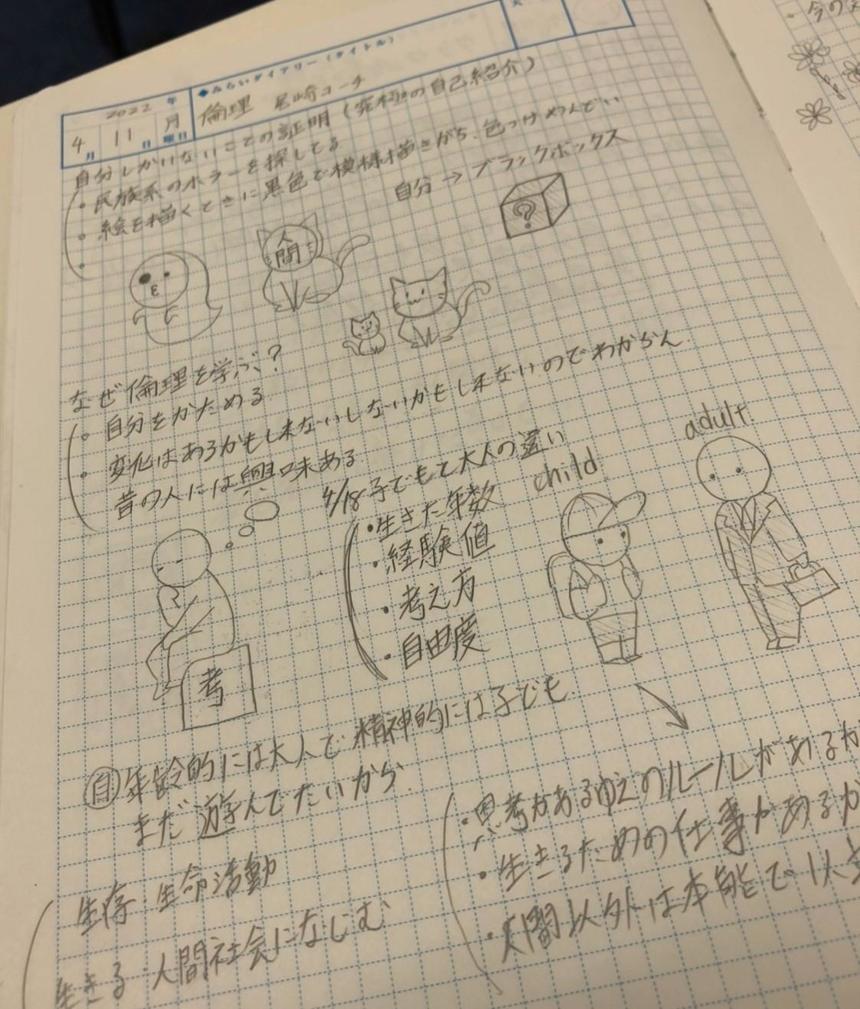 ◆みらいダイアリー(タイトル)
2022年
4月11日
月曜日
倫理 尾崎コーチ
自分しかいないことの証明(究極の自己紹介)
・民族系のホラーを探してる
・絵を描くときに黒色で模様描きがち、色つけめんどい
自分→ブラックボックス
?
人間
なぜ倫理を学ぶ?
・自分をかためる
・変化はあるかもしれないしないかもしれないのでわからん
昔の人には興味ある
4/18 子どもと大人の違い
・生きた年数
・経験値
・考え方
・自由度
child
adult
考
自 年齢的には大人で精神的には子ども
まだ遊んでたいから
・思考があるゆえのルールがあるか
・生きるための仕事があるか
・人間以外は本能で
生存・生命活動
生きる・人間社会になじむ
・今の